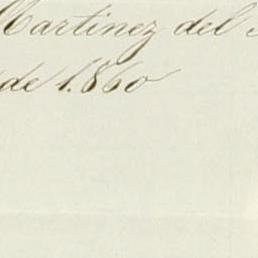 Martinez del
de 1.860